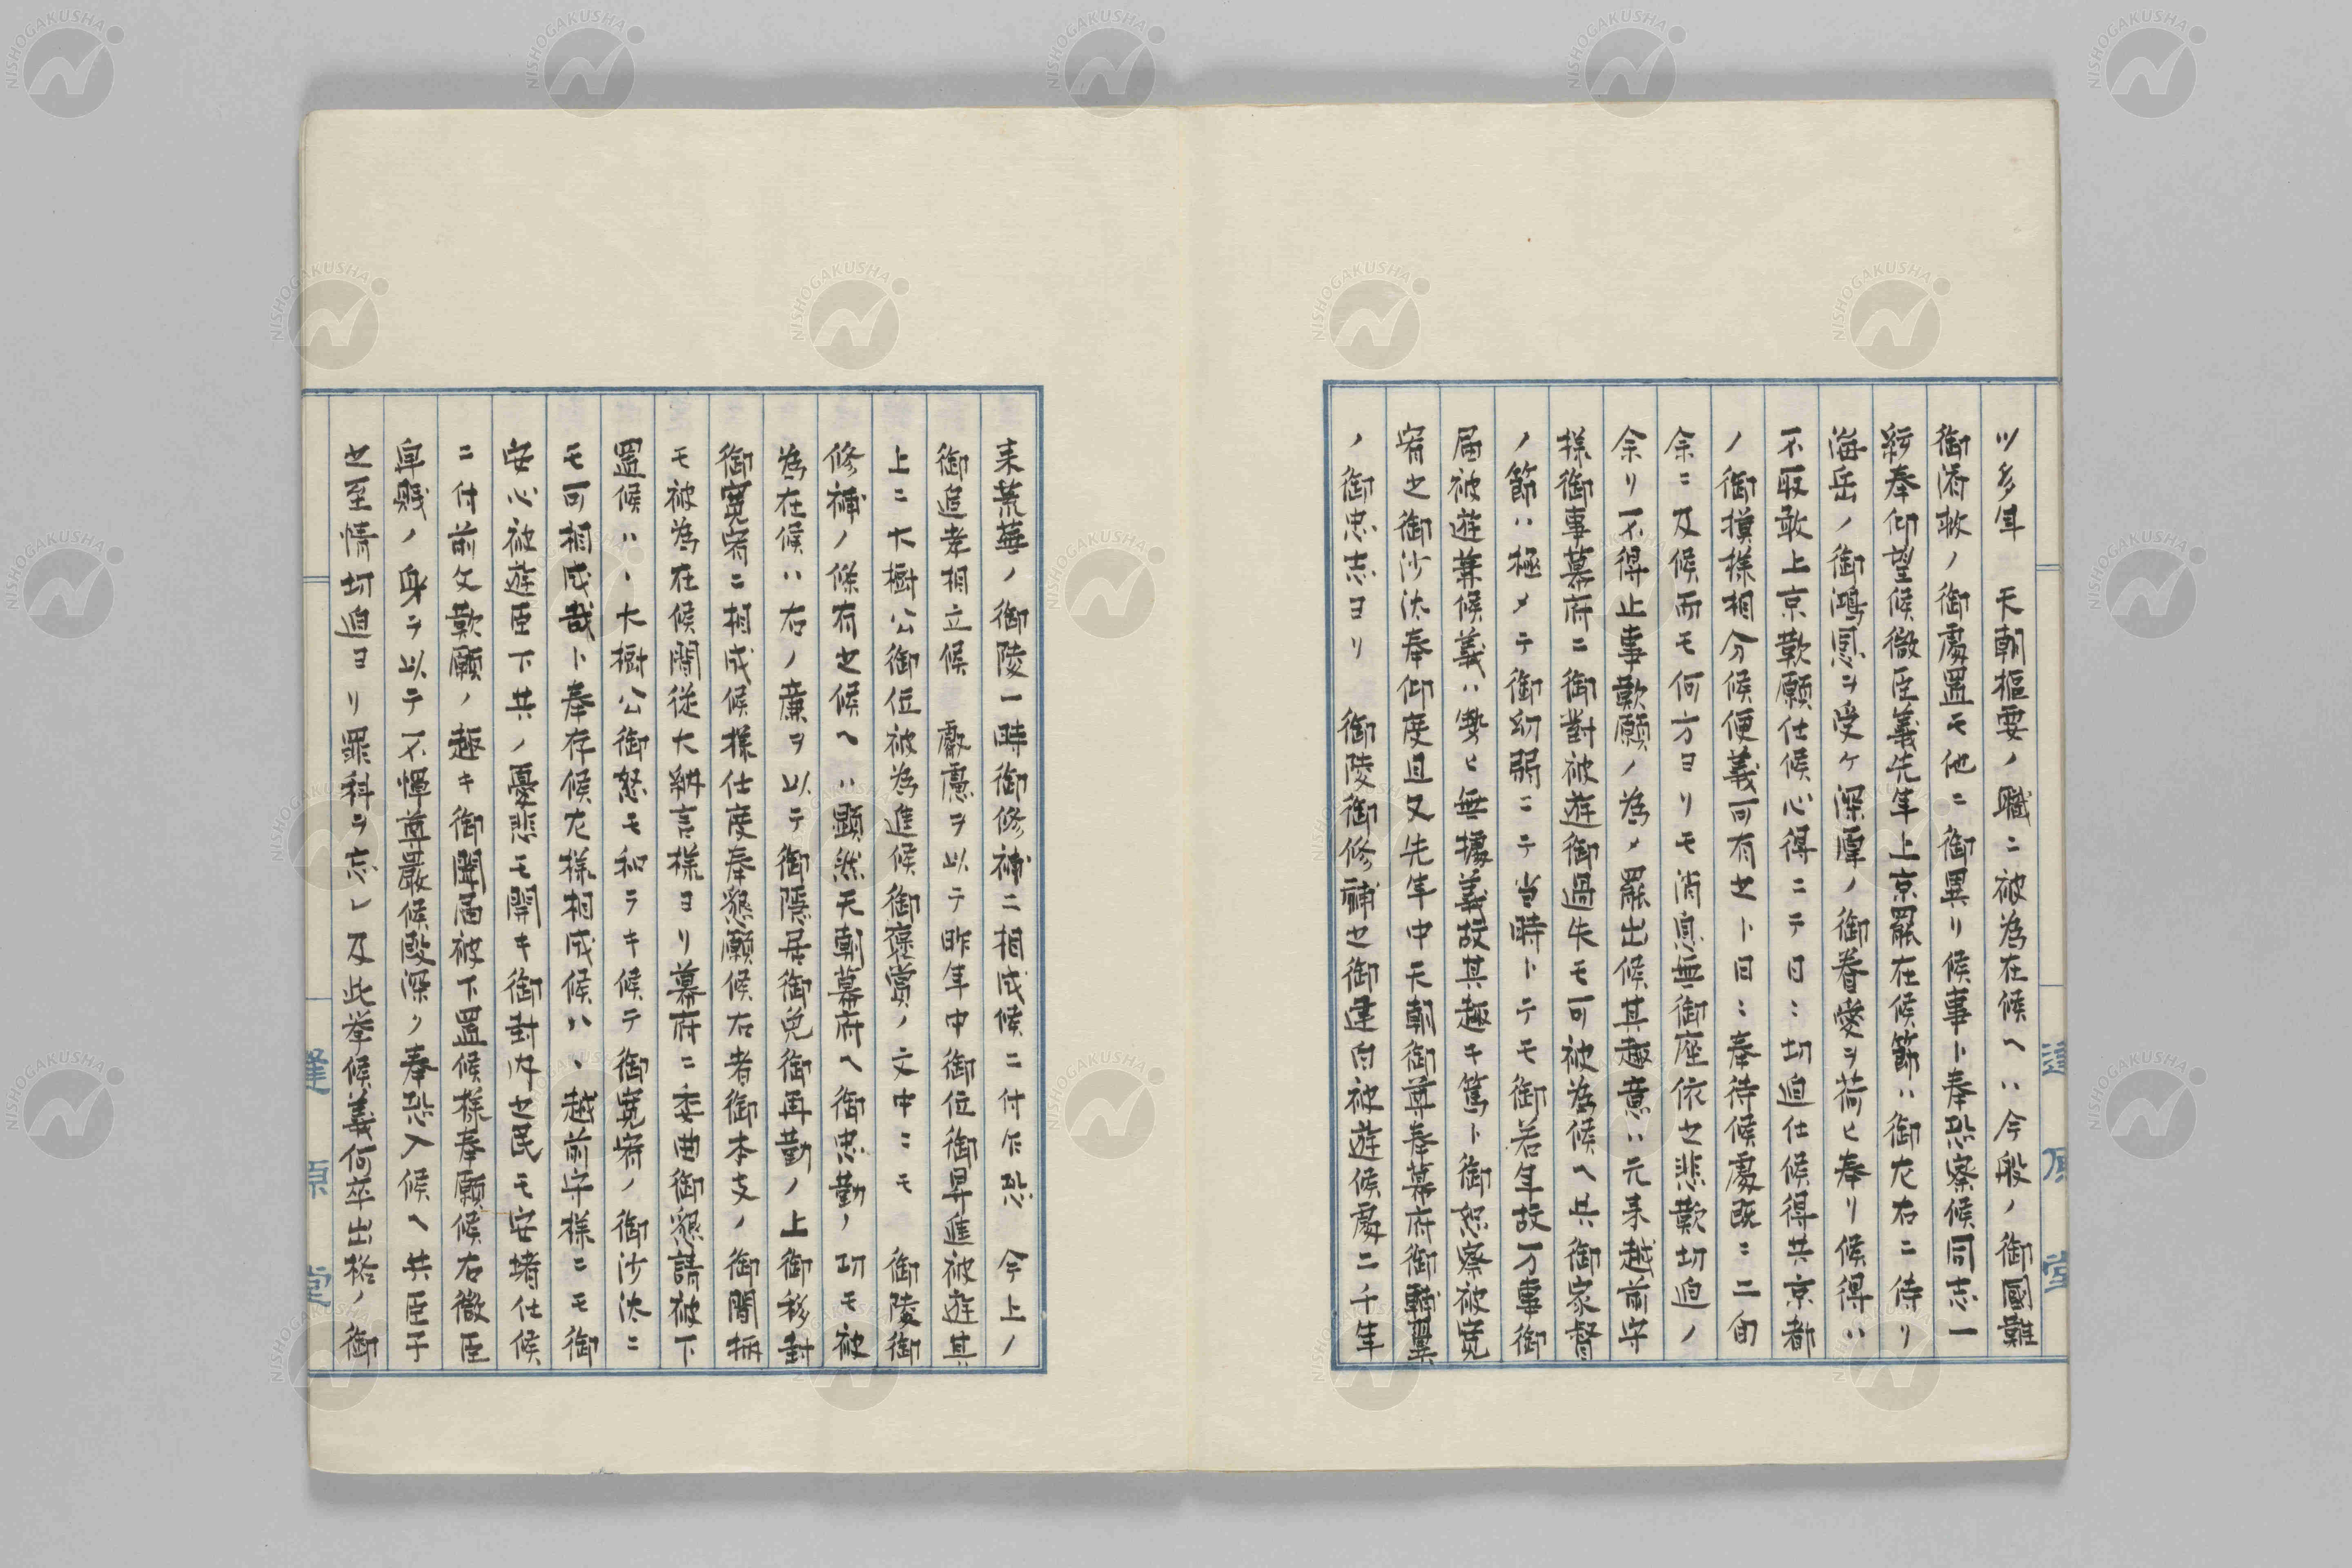 ツ多年　天朝樞要ノ職ニ被為在候ヘハ今般ノ御國難
御済救ノ御處置モ他ニ御異リ候事ト奉恐察候同志一
統奉仰望候微臣義先年上京罷在候節ハ御左右ニ侍リ
海岳ノ御鴻恩ヲ受ケ深厚ノ御眷愛ヲ荷ヒ奉リ候得ハ
不取敢上京歎願仕候心得ニテ日ニ切迫仕候得共京都
ノ御摸様相分候便義可有之ト日ニ奉待候處既ニ二旬
余ニ及候而モ何方ヨリモ消息無御座依之悲歎切迫ノ
余リ不得止事歎願ノ為メ罷出候其趣意ハ元来越前守
様御事幕府ニ御對被遊御過失モ可被為候ヘ共御家督
ノ節ハ極メテ御幼弱ニテ当時トテモ御若年故万事御
届被遊兼候義ハ勢ヒ無據義故其趣キ篤ト御恕察被寛
宥之御沙汰奉仰度且又先年中天朝御尊奉幕府御輔翼
ノ御忠志ヨリ　御陵御修補之御建白被遊候處二千年
来荒蕪ノ御陵一時御修補ニ相成候ニ付乍恐　今上ノ
御追孝相立候　叡慮ヲ以テ昨年中御位御昇進被遊其
上ニ大樹公御位被為進候御褒賞ノ文中ニモ　御陵御
修補ノ條有之候ヘハ顕然天朝幕府ヘ御忠勤ノ功モ被
為在候ハ右ノ廉ヲ以テ御隠居御免御再勤ノ上御移封
御寛宥ニ相成候様仕度奉懇願候右者御本支ノ御間柄
モ被為在候間従大納言様ヨリ幕府ニ委曲御懇請被下
置候ハヽ大樹公御怒モ和ラキ候テ御寛宥ノ御沙汰ニ
モ可相成哉ト奉存候左様相成候ハヽ越前守様ニモ御
安心被遊臣下共ノ憂悲モ開キ御封内之民モ安堵仕候
ニ付前文歎願ノ趣キ御聞届被下置候様奉願候右微臣
卑賤ノ身ヲ以テ不憚尊嚴候段深ク奉恐入候ヘ共臣子
之至情切迫ヨリ罪科ヲ忘レ及此挙候義何卒出格ノ御
逢原堂
逢原堂